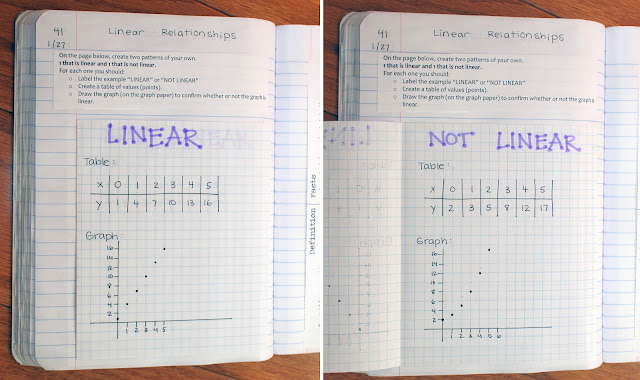 41
1/27
Linear Relationships
On the page below, create two patterns of your own.
1 that is linear and 1 that is not linear.
For each one you should:
o Label the example "LINEAR" or "NOT LINEAR"
o Create a table of values (points).
o Draw the graph (on the graph paper) to confirm whether or not the graph is
linear.
LINEAR
Table:
X 0 1 2 3 4 5
Y 1 4 7 10 13 16
Graph:
16
14
12
10
8
6
4
2
1 2 3 4 5
Definition Facts
41
1/27
Linear Relationships
On the page below, create two patterns of your own.
1 that is linear and 1 that is not linear.
For each one you should:
o Label the example "LINEAR" or "NOT LINEAR"
o Create a table of values (points).
o Draw the graph (on the graph paper) to confirm whether or not the graph is
linear.
NOT LINEAR
Table:
X 0 1 2 3 4 5
Y 2 3 5 8 12 17
Graph:
16
14
12
10
8
6
4
2
1 2 3 4 5 6